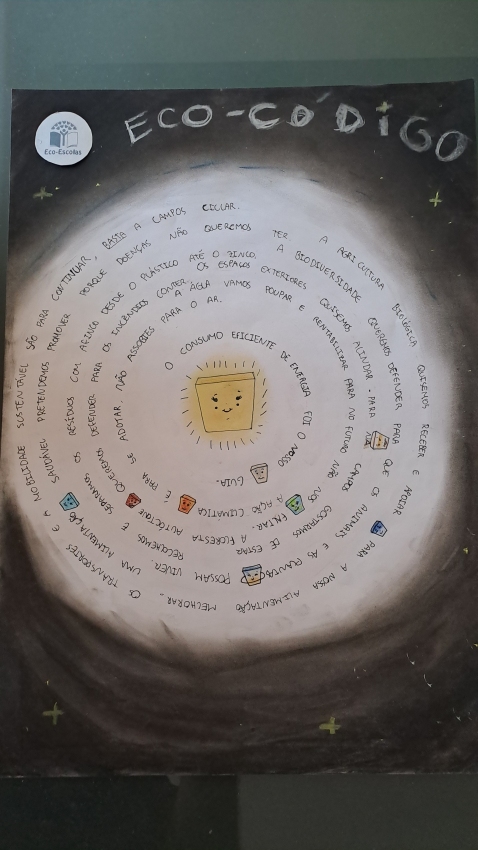 ECO-CÓDIGO
Eco-Escolas
O CONSUMO EFICIENTE DE ENERGIA FOI O NOSSO GUIA.
A ÁGUA VAMOS POUPAR E RENTABILIZAR PARA NO FUTURO NÃO NOS FALTAR.
A AÇÃO CLIMÁTICA É PARA SE ADOTAR. NÃO ASSOBIES PARA O AR.
OS ESPAÇOS EXTERIORES QUISEMOS ALINDAR, PARA NOS CAMPOS GOSTARMOS DE ESTAR.
A FLORESTA AUTÓCTONE QUEREMOS DEFENDER PARA OS INCÊNDIOS CONTER.
A BIODIVERSIDADE QUEREMOS DEFENDER PARA QUE OS ANIMAIS E AS PLANTAS POSSAM VIVER.
E SEPARAMOS OS RESÍDUOS COM AFINCO DESDE O PLÁSTICO ATÉ O ZINCO.
A AGRICULTURA BIOLÓGICA QUISEMOS RECEBER E APOIAR PARA A NOSSA ALIMENTAÇÃO MELHORAR.
UMA ALIMENTAÇÃO SAUDÁVEL PRETENDEMOS PROMOVER PORQUE DOENÇAS NÃO QUEREMOS TER.
OS TRANSPORTES E A MOBILIDADE SUSTENTÁVEL SÃO PARA CONTINUAR, BASTA A CAMPOS CICLAR.